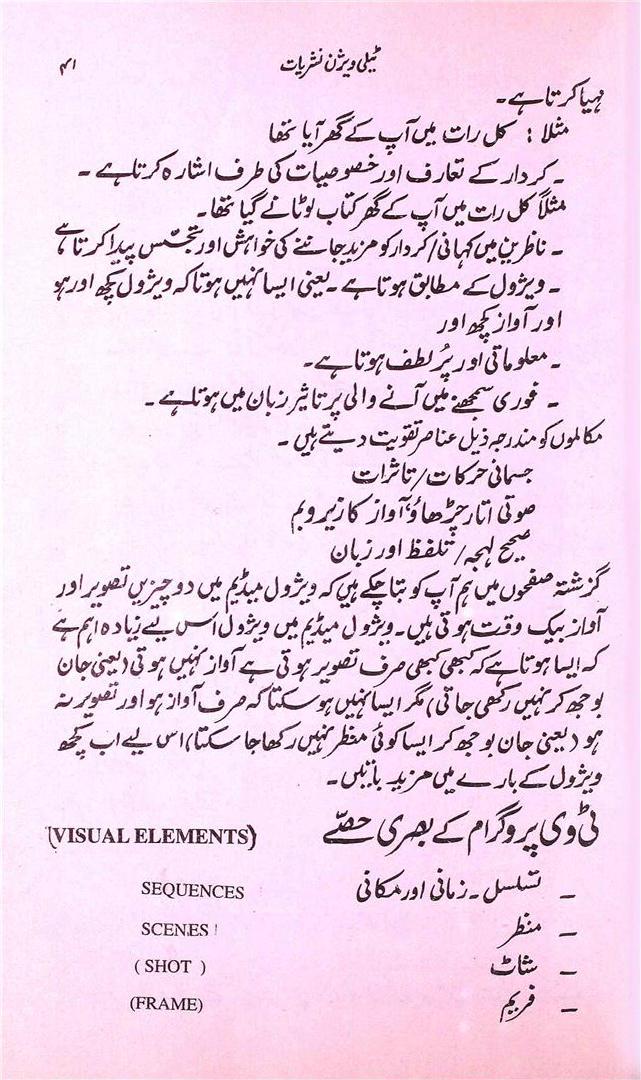 ٹیلی ویژن نشریات ۴۱
ہیا کرتا ہے۔
مثلا : کل رات میں آپ کے گھر آیا تھا
۔ کردار کے تعارف اور خصوصیات کی طرف اشارہ کرتا ہے ۔
مثلاً کل رات میں آپ کے گھر کتاب لوٹانے گیا تھا۔
۔ ناظرین میں کہانی/کردار کو مزید جاننے کی خواہش اور تجسّس پیدا کرتا ہے
۔ ویژول کے مطابق ہوتا ہے ۔ یعنی ایسا نہیں ہوتا کہ ویژول کچھ اور ہو
اور آواز کچھ اور
۔ معلوماتی اور پُر لطف ہوتا ہے۔
۔ فوری سمجھنے میں آنے والی پر تاثیر زبان میں ہوتا ہے ۔
مکالموں کو مندرجہ ذیل عناصر تقویت دیتے ہیں ۔
جسمانی حرکات/تاثرات
صوتی اتار چڑھاؤ، آواز کا زیر و بم
صحیح لہجہ/تلفظ اور زبان
گزشتہ صفحوں میں ہم آپ کو بتا چکے ہیں کہ ویژول میڈیم میں دو چیزیں تصویر اور
آواز بیک وقت ہوتی ہیں۔ ویژول میڈیم میں ویژول اس لیے زیادہ اہم ہے
کہ ایسا ہوتا ہے کہ کبھی کبھی صرف تصویر ہوتی ہے آواز نہیں ہوتی (یعنی جان
بوجھ کر نہیں رکھی جاتی) مگر ایسا نہیں ہو سکتا کہ صرف آواز ہو اور تصویر نہ
ہو (یعنی جان بوجھ کر ایسا کوئی منظر نہیں رکھا جا سکتا) اس لیے اب کچھ
ویژول کے بارے میں مزید باتیں۔
ٹی وی پروگرام کے بصری حصّے (VISUAL ELEMENTS)
۔ تسلسل ۔ زمانی اور مکانی SEQUENCES
۔ منظر SCENES
۔ شاٹ ( SHOT )
۔ فریم (FRAME)